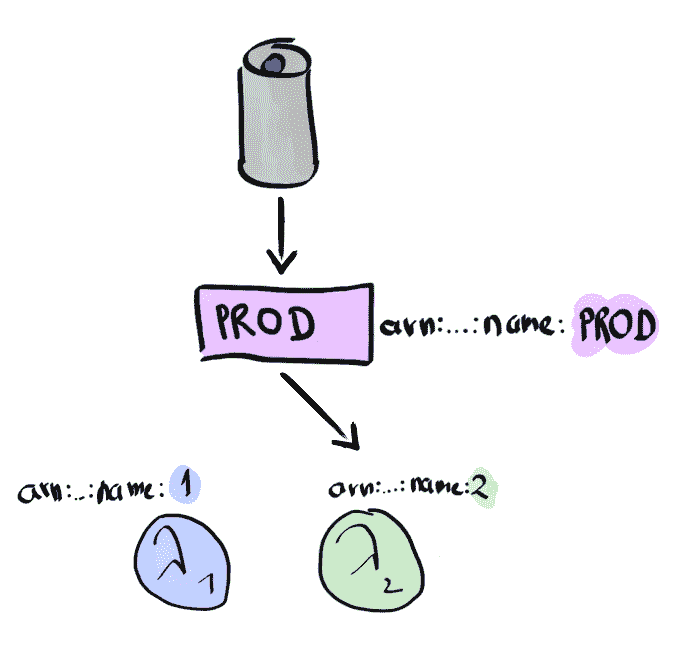 PROD
arn:...:name: PROD
arn:...:name: 1
arn:...:name:2
λ1
λ2